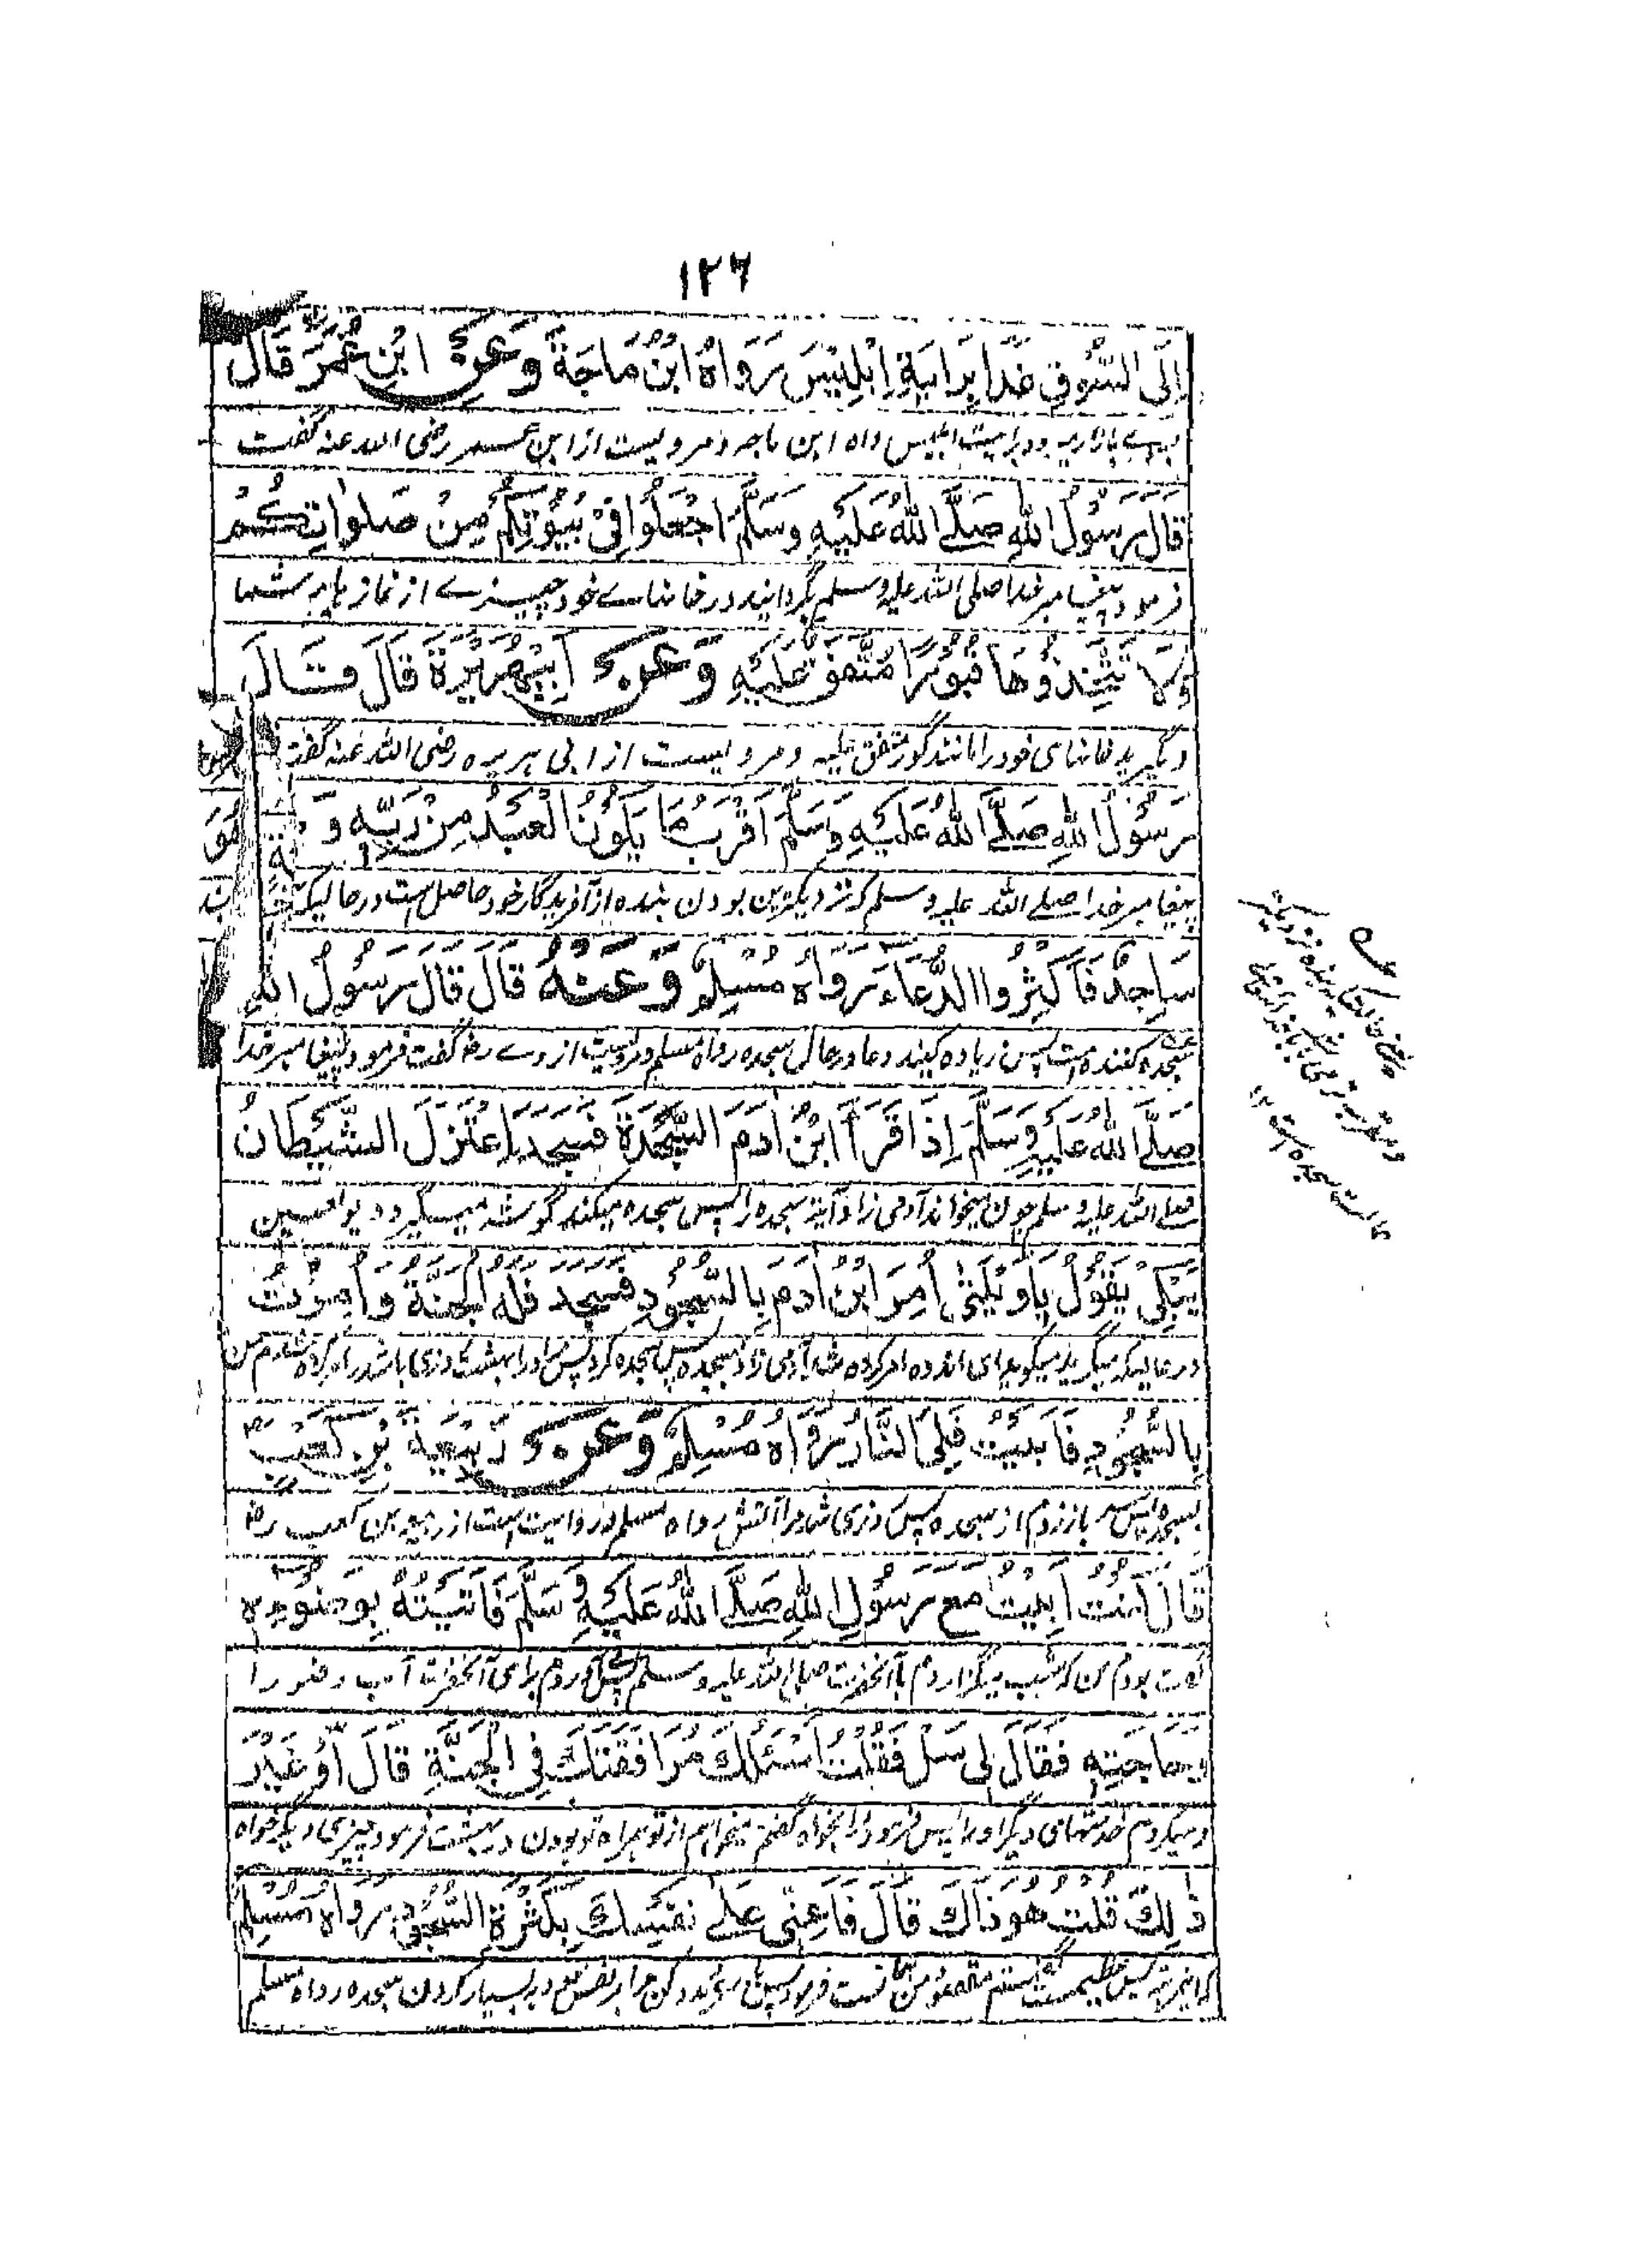 ١٢٦
اِلَى السُّوْقِ غَدَا بِرَايَةِ اِبْلِيْسَ رَوَاهُ ابْنُ مَاجَةَ وَعَنْ ابْنِ عُمَرَ قَالَ
ابلیس رواه ابن ماجه و مرویست از ابن عمر رضی الله عنه گفت
قَالَ رَسُوْلُ اللهِ صَلَّے اللهُ عَلَيْهِ وَسَلَّمَ اجْعَلُوْا فِيْ بُيُوْتِكُمْ مِنْ صَلٰوَاتِكُمْ
فرمود پیغامبر خدا صلی الله علیه وسلم بگردانید در خانهاے خود چیزے از نماز
وَلَا تَتَّخِذُوْهَا قُبُوْرًا مُتَّفَقٌ عَلَيْهِ وَعَنْ اَبِيْ هُرَيْرَةَ قَالَ قَالَ
و گیرید خانهای خود را مانند گور متفق علیه و مرویست از ابی هریره رضی الله عنه گفت
رَسُوْلُ اللهِ صَلَّے اللهُ عَلَيْهِ وَسَلَّمَ اَقْرَبُ مَا يَكُوْنُ الْعَبْدُ مِنْ رَبِّهِ وَ
پیغامبر خدا صلے الله علیه وسلم که نزدیکترین بودن بنده از آفریدگار خود حاصل است در حالیکه
سَاجِدٌ فَاَكْثِرُوا الدُّعَاءَ رَوَاهُ مُسْلِمٌ وَعَنْهُ قَالَ قَالَ رَسُوْلُ اللهِ
سجده کننده است پس زیاده کنید دعا در حال سجده رواه مسلم و مرویست از وے رض گفت فرمود پیغامبر خدا
صَلَّے اللهُ عَلَيْهِ وَسَلَّمَ اِذَا قَرَأَ ابْنُ اٰدَمَ السَّجْدَةَ فَسَجَدَ اِعْتَزَلَ الشَّيْطَانُ
صلے الله علیه وسلم چون میخواند آدمی زاد آیة سجده را پس سجده میکند گوشه میگیرد دیو لعین
يَبْكِيْ يَقُوْلُ يَا وَيْلَتٰى اُمِرَ ابْنُ اٰدَمَ بِالسُّجُوْدِ فَسَجَدَ فَلَهُ الْجَنَّةُ وَاُمِرْتُ
در حالیکه میگرید میگوید ای اندوه امر کرده شد آدمی زاد بسجده پس سجده کرد پس مر او را بهشت
بِالسُّجُوْدِ فَاَبَيْتُ فَلِيَ النَّارُ رَوَاهُ مُسْلِمٌ وَعَنْ رَبِيْعَةَ بْنِ كَعْبٍ
بسجده پس سر باز زدم از سجده پس آتش رواه مسلم و روایت است از ربیعه بن کعب رض
قَالَ كُنْتُ اَبِيْتُ مَعَ رَسُوْلِ اللهِ صَلَّے اللهُ عَلَيْهِ وَسَلَّمَ فَاَتَيْتُهُ بِوَضُوْئِهِ
بودم من که شب میگزاردم با آنحضرت صلے الله علیه وسلم پس آوردم برای آنحضرت آب وضو را
وَحَاجَتِهِ فَقَالَ لِيْ سَلْ فَقُلْتُ اَسْئَلُكَ مُرَافَقَتَكَ فِي الْجَنَّةِ قَالَ اَوْ غَيْرَ
و میکردم خدمتهای دیگر او را پس فرمود مرا بخواه گفتم میخواهم از تو همراه تو بودن در بهشت فرمود چیزی دیگر خواه
ذٰلِكَ قُلْتُ هُوَ ذَاكَ قَالَ فَاَعِنِّيْ عَلٰے نَفْسِكَ بِكَثْرَةِ السُّجُوْدِ رَوَاهُ مُسْلِمٌ
مقصود من فرمود پس مدد کن مرا بر نفس خود بسیار کردن سجده رواه مسلم